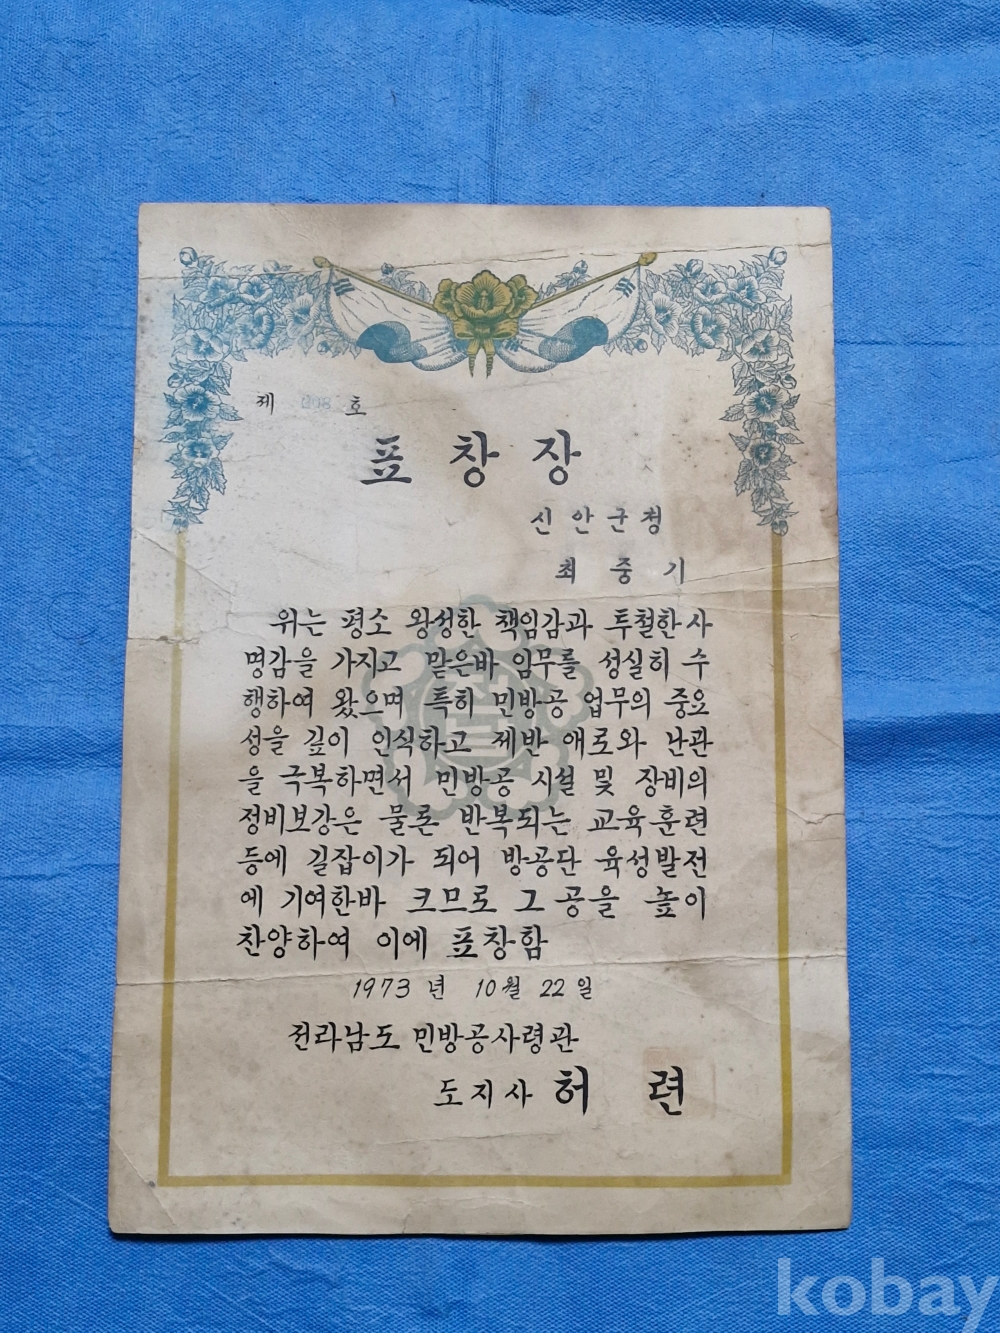 제 호
표창장
신안군청
최중기
위는 평소 왕성한 책임감과 투철한 사
명감을 가지고 맡은바 임무를 성실히 수
행하여 왔으며 특히 민방공 업무의 중요
성을 깊이 인식하고 제반 애로와 난관
을 극복하면서 민방공 시설 및 장비의
정비보강은 물론 반복되는 교육훈련
등에 길잡이가 되어 방공단 육성발전
에 기여한바 크므로 그 공을 높이
찬양하여 이에 표창함
1973년 10월 22일
전라남도 민방공사령관
도지사 허 련
kobay